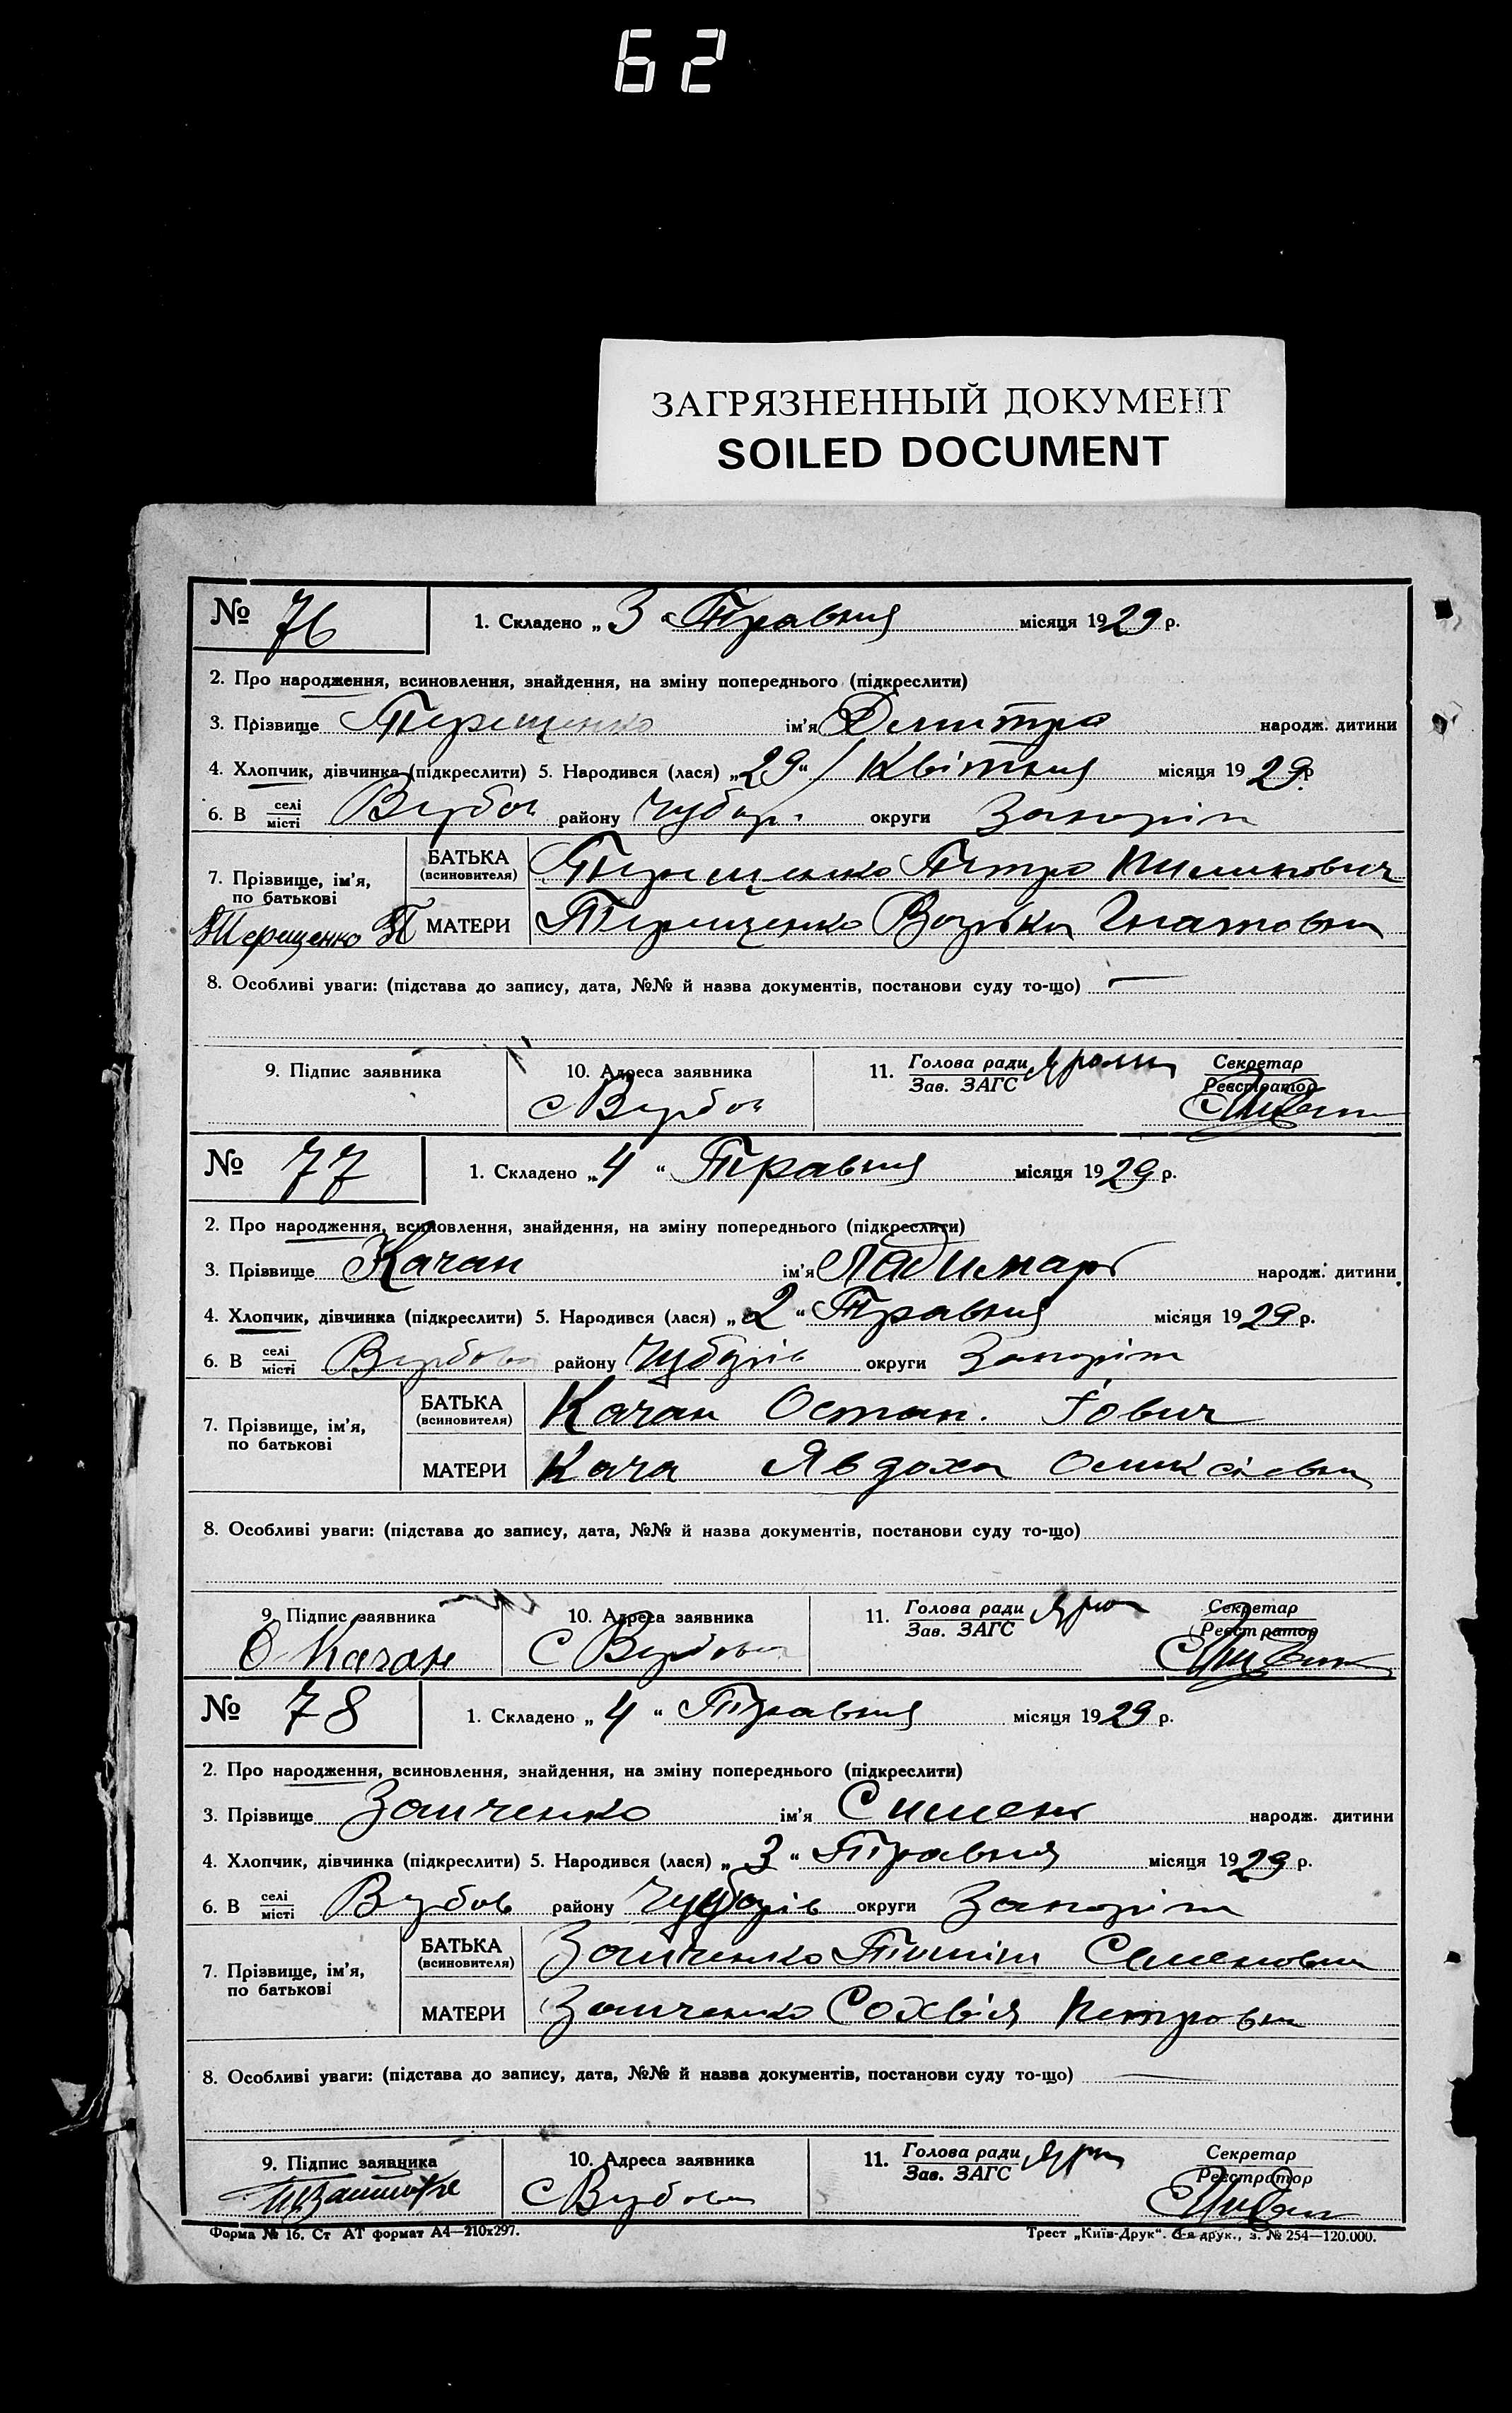 62
ЗАГРЯЗНЕННЫЙ ДОКУМЕНТ
SOILED DOCUMENT
№ 76 1. Складено „3“ Травня місяця 1929 р.
2. Про народження, всиновлення, знайдення, на зміну попереднього (підкреслити)
3. Прізвище Терещенко ім'я Дмитро народж. дитини
4. Хлопчик, дівчинка (підкреслити) 5. Народився (лася) „29“ Квітня місяця 1929 р
6. В селі/місті Вербов району Чубар. округи Запоріж
7. Прізвище, ім'я, по батькові
БАТЬКА (всиновителя) Терещенко Петро
Терещенко П МАТЕРИ Терещенко Гнатовна
8. Особливі уваги: (підстава до запису, дата, №№ й назва документів, постанови суду то-що) —
9. Підпис заявника 10. Адреса заявника 11. Голова ради/Зав. ЗАГС Секретар/Реєстратор
С Вербов
№ 77 1. Складено „4“ Травня місяця 1929 р.
2. Про народження, всиновлення, знайдення, на зміну попереднього (підкреслити)
3. Прізвище Качан ім'я народж. дитини
4. Хлопчик, дівчинка (підкреслити) 5. Народився (лася) „2“ Травня місяця 1929 р.
6. В селі/місті Вербова району Чубарів округи Запоріж
7. Прізвище, ім'я, по батькові
БАТЬКА (всиновителя) Качан Остап.
МАТЕРИ Кача Явдоха Оликсіевна
8. Особливі уваги: (підстава до запису, дата, №№ й назва документів, постанови суду то-що)
9. Підпис заявника 10. Адреса заявника 11. Голова ради/Зав. ЗАГС Секретар/Реєстратор
О Качан С Вербова
№ 78 1. Складено „4“ Травня місяця 1929 р.
2. Про народження, всиновлення, знайдення, на зміну попереднього (підкреслити)
3. Прізвище Заиченко ім'я Симень народж. дитини
4. Хлопчик, дівчинка (підкреслити) 5. Народився (лася) „3“ Травня місяця 1929 р.
6. В селі/місті Вербов району Чубарів округи Запоріж
7. Прізвище, ім'я, по батькові
БАТЬКА (всиновителя) Заиченко Семенович
МАТЕРИ Заиченко Сохвія Петровна
8. Особливі уваги: (підстава до запису, дата, №№ й назва документів, постанови суду то-що) —
9. Підпис заявника 10. Адреса заявника 11. Голова ради/Зав. ЗАГС Секретар/Реєстратор
С Вербова
Форма № 16. Ст АТ формат А4—210x297. Трест „Київ-Друк“. друк., з. № 254—120.000.